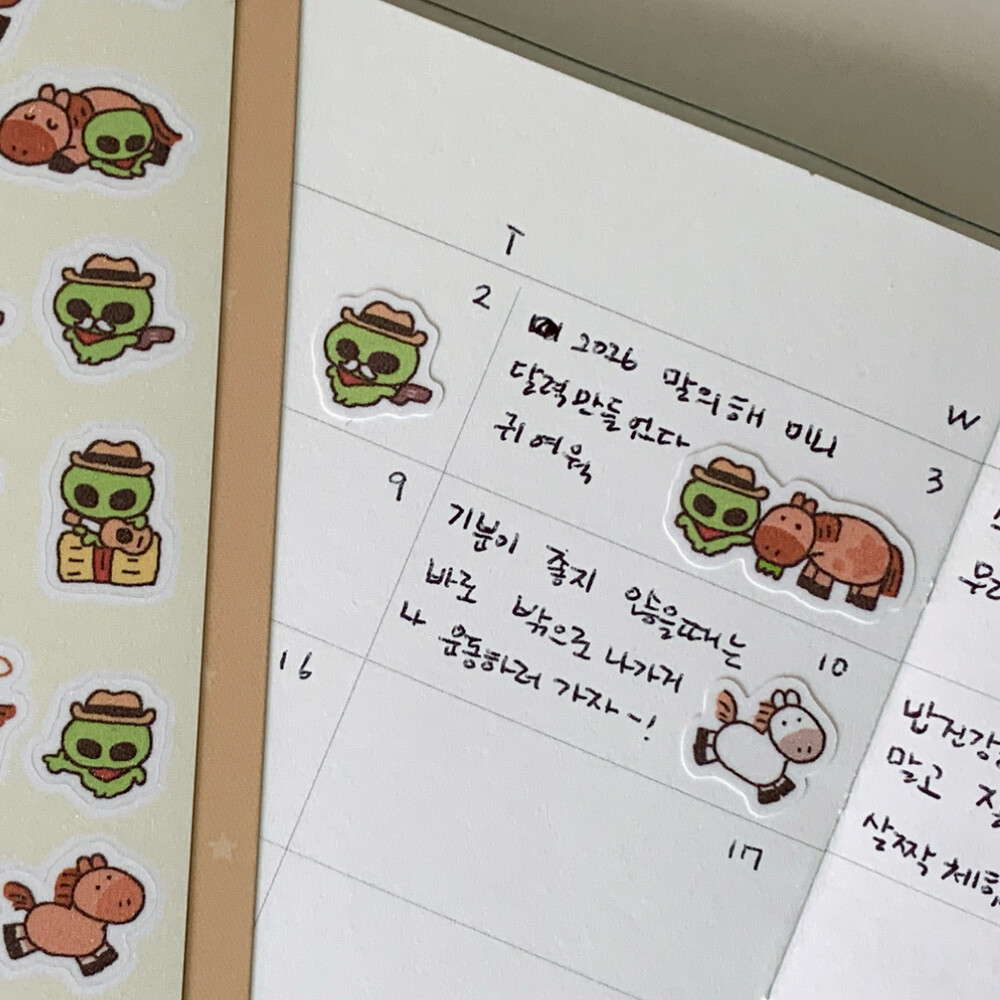 T
W
2
3
2026 말의해 미니
달력만들었다
귀여워
9
10
기분이 좋지 않을때는
바로 밖으로 나가거
나 운동하러 가자~!
16
17
밥 건강
말고
살짝 체